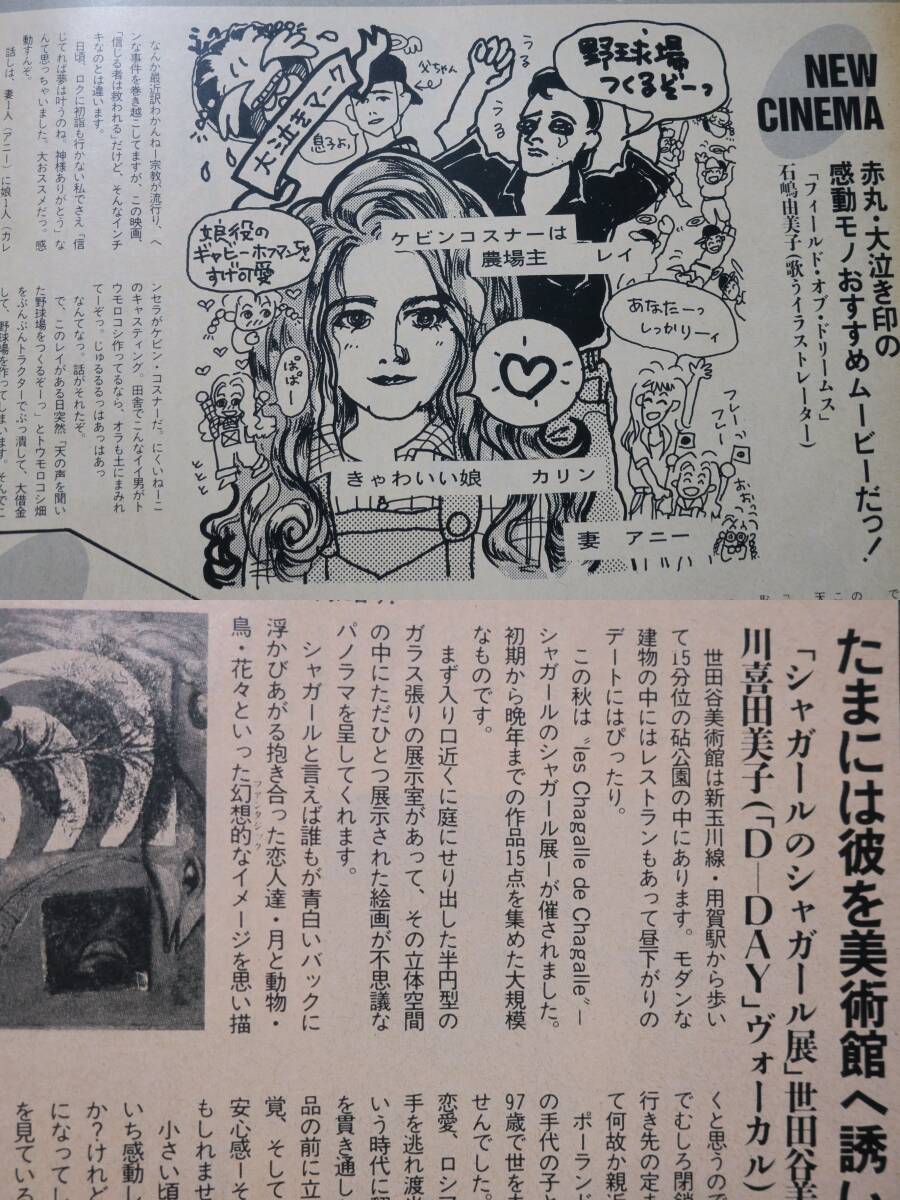 NEW
CINEMA
赤丸・大泣き印の
感動モノおすすめムービーだっ！
「フィールド・オブ・ドリームス」
石嶋由美子（歌うイラストレーター）
野球場
つくるぞーっ
うる
うる
父ちゃん
息子よ
大泣きマーク
娘役の
ギャビーホフマンちゃん
すげ可愛
ケビンコスナーは
農場主　レイ
あなたーっ
しっかりィ
ぱぱー
フレー
フレー
おおっ
トトト
きゃわいい娘　カリン
妻　アニー
なんか最近訳わかんねー宗教が流行り、へ
ンな事件を巻き越こしてますが、この映画、
「信じる者は救われる」だけど、そんなインチ
キなのとは違います。
日頃、ロクに初詣も行かない私でさえ「信
じてれば夢は叶うのね。神様ありがとう」な
んて思っちゃいました。大おススメだっ。感
動すんぞ。
話しは、妻1人（アニー）に娘1人（カレ
ンセラがケビン・コスナーだ。にくいねーこ
のキャスティング。田舎でこんなイイ男がト
ウモロコシ作ってるなら、オラも土にまみれ
てーぞっ。じゅるるるっはあっはあっ
なんてなっ。話がそれたぞ。
で、このレイがある日突然「天の声を聞い
た野球場をつくるぞーっ」とトウモロコシ畑
をぶんぶんトラクターでぶっ潰して、大借金
して、野球場を作ってしまいます。そんでこ
たまには彼を美術館へ誘い
「シャガールのシャガール展」世田谷美
川喜田美子（「D―DAY」ヴォーカル）
世田谷美術館は新玉川線・用賀駅から歩い
て15分位の砧公園の中にあります。モダンな
建物の中にはレストランもあって昼下がりの
デートにはぴったり。
この秋は〝les Chagalle de Chagalle〟―
シャガールのシャガール展―が催されました。
初期から晩年までの作品15点を集めた大規模
なものです。
まず入り口近くに庭にせり出した半円型の
ガラス張りの展示室があって、その立体空間
の中にただひとつ展示された絵画が不思議な
パノラマを呈してくれます。
シャガールと言えば誰もが青白いバックに
浮かびあがる抱き合った恋人達・月と動物・
鳥・花々といった幻想的なイメージを思い描
ファンタジック
くと思うので
でむしろ閉鎖
行き先の定ま
て何故か親近
ポーランド
の手代の子と
97歳で世を去
せんでした。
恋愛、ロシア
手を逃れ渡米
いう時代に翻
を貫き通し
品の前に立
覚、そして
安心感―そ
もしれませ
小さい頃
いち感動し
か？けれど
になってし
を見ている